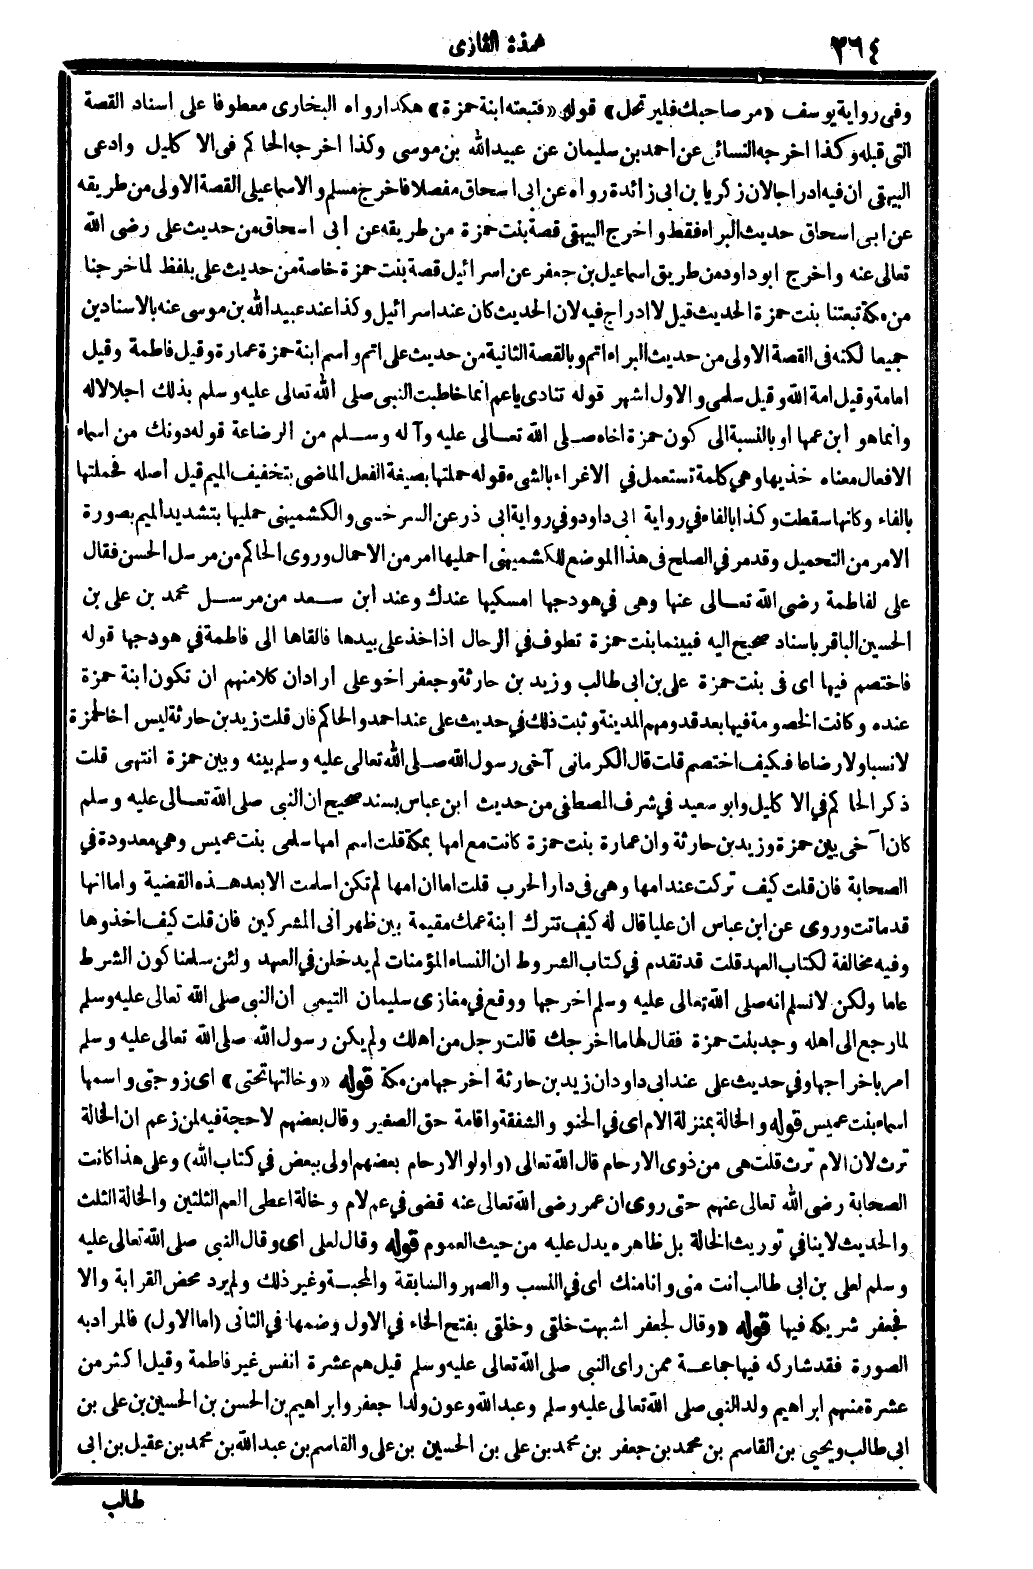 ٢٦٤
عمدة القارى
وفى رواية يوسف «مر صاحبك فليرتحل» قوله «فتبعته ابنة حمزة» هكذا رواه البخارى معطوفا على اسناد القصة
التى قبله وكذا اخرجه النسائى عن احمد بن سليمان عن عبيد الله بن موسى وكذا اخرجه الحاكم فى الا كليل وادعى
البيهقى ان فيه ادراجا لان زكريا بن ابى زائدة رواه عن ابى اسحاق مفصلا فاخرج مسلم والاسماعيلى القصة الاولى من طريقه
عن ابى اسحاق حديث البراء فقط واخرج البيهقى قصة بنت حمزة من طريقه عن ابى اسحاق من حديث على رضى الله
تعالى عنه واخرج ابو داود من طريق اسماعيل بن جعفر عن اسرائيل قصة بنت حمزة خاصة من حديث على بلفظ لما خرجنا
من مكة تبعتنا بنت حمزة الحديث قيل لا ادراج فيه لان الحديث كان عند اسرائيل وكذا عند عبيد الله بن موسى عنه بالاسنادين
جميعا لكنه فى القصة الاولى من حديث البراء اتم وبالقصة الثانية من حديث على اتم واسم ابنة حمزة عمارة وقيل فاطمة وقيل
امامة وقيل امة الله وقيل سلمى والاول اشهر قوله تنادى ياعم انما خاطبت النبى صلى الله تعالى عليه وسلم بذلك اجلالا له
وانما هو ابن عمها او بالنسبة الى كون حمزة اخاه صلى الله تعالى عليه وآله وسلم من الرضاعة قوله دونك من اسماء
الافعال معناه خذيها وهى كلمة تستعمل في الاغراء بالشىء قوله حملتها بصيغة الفعل الماضى بتخفيف الميم قيل أصله فحملتها
بالفاء وكانها سقطت وكذا بالفاء في رواية ابى داود وفي رواية ابى ذر عن السرخسى والكشميهنى حمليها بتشديد الميم بصورة
الامر من التحميل وقد مر في الصلح فى هذا الموضع للكشميهنى احمليها امر من الاحمال وروى الحاكم من مرسل الحسن فقال
على لفاطمة رضى الله تعالى عنها وهى في هودجها امسكيها عندك وعند ابن سعد من مرسل محمد بن على بن
الحسين الباقر باسناد صحيح اليه فبينما بنت حمزة تطوف في الرحال اذ اخذ على بيدها فالقاها الى فاطمة في هودجها قوله
فاختصم فيها اى فى بنت حمزة على بن ابى طالب وزيد بن حارثة وجعفر اخو على أراد ان كلا منهم ان تكون ابنة حمزة
عنده وكانت الخصومة فيها بعد قدومهم المدينة وثبت ذلك في حديث على عند احمد والحاكم فان قلت زيد بن حارثة ليس أخا لحمزة
لا نسبا ولا رضاعا فكيف اختصم قلت قال الكرمانى آخى رسول الله صلى الله تعالى عليه وسلم بينه وبين حمزة انتهى قلت
ذكر الحاكم في الا كليل وابو سعيد في شرف المصطفى من حديث ابن عباس بسند صحيح ان النبى صلى الله تعالى عليه وسلم
كان آخى بين حمزة وزيد بن حارثة وان عمارة بنت حمزة كانت مع امها بمكة قلت اسم امها سلمى بنت عميس وهى معدودة في
الصحابة فان قلت كيف تركت عند امها وهى فى دار الحرب قلت اما ان امها لم تكن اسلمت الا بعد هذه القضية واما انها
قد ماتت وروى عن ابن عباس ان عليا قال له كيف تترك ابنة عمك مقيمة بين ظهرانى المشركين فان قلت كيف اخذوها
وفيه مخالفة لكتاب العهد قلت قد تقدم في كتاب الشروط ان النساء المؤمنات لم يدخلن في العهد ولئن سلمنا كون الشرط
عاما ولكن لانسلم انه صلى الله تعالى عليه وسلم اخرجها ووقع في مغازى سليمان التيمى ان النبى صلى الله تعالى عليه وسلم
لما رجع الى أهله وجد بنت حمزة فقال لها ما اخرجك قالت رجل من اهلك ولم يكن رسول الله صلى الله تعالى عليه وسلم
امر باخراجها وفي حديث على عند ابى داود ان زيد بن حارثة أخرجها من مكة قوله «وخالتها تحتى» اى زوجتى واسمها
اسماء بنت عميس قوله والخالة بمنزلة الام اى في الحنو والشفقة واقامة حق الصغير وقال بعضهم لا حجة فيه لمن زعم ان الخالة
ترث لان الام ترث قلت هى من ذوى الارحام قال الله تعالى (واولو الارحام بعضهم اولى ببعض في كتاب الله) وعلى هذا كانت
الصحابة رضى الله تعالى عنهم حتى روى ان عمر رضى الله تعالى عنه قضى في عم لام وخالة اعطى العم الثلثين والخالة الثلث
والحديث لا ينافي توريث الخالة بل ظاهره يدل عليه من حيث العموم قوله وقال لعلى اى وقال النبى صلى الله تعالى عليه
وسلم لعلى بن ابى طالب أنت منى وانا منك اى في النسب والصهر والسابقة والمحبة وغير ذلك ولم يرد محض القرابة والا
فجعفر شريكه فيها قوله «وقال لجعفر اشبهت خلقى وخلقى بفتح الخاء في الاول وضمها في الثانى (اما الاول) فالمراد به
الصورة فقد شاركه فيها جماعة ممن راى النبى صلى الله تعالى عليه وسلم قيل هم عشرة انفس غير فاطمة وقيل اكثر من
عشرة منهم ابراهيم ولد النبى صلى الله تعالى عليه وسلم وعبد الله وعون ولدا جعفر وابراهيم بن الحسن بن الحسين بن على بن
ابى طالب ويحيى بن القاسم بن محمد بن جعفر بن محمد بن على بن الحسين بن على والقاسم بن عبد الله بن محمد بن عقيل بن ابى
طالب